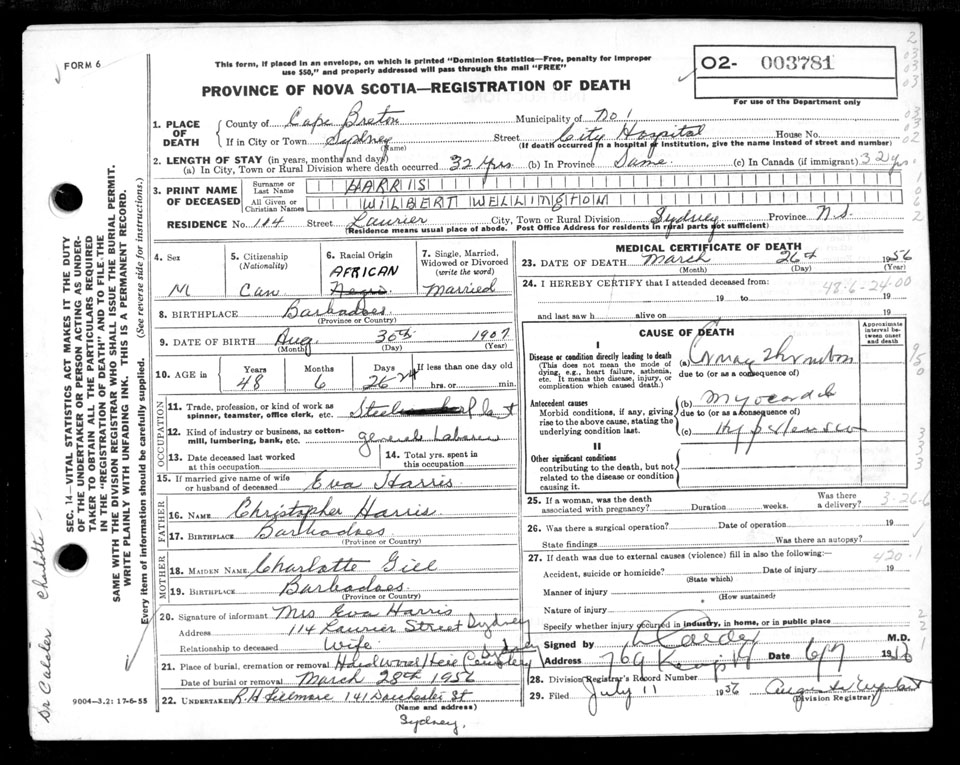 FORM 6
This form, if placed in an envelope, on which is printed "Dominion Statistics—Free, penalty for improper
use $50," and properly addressed will pass through the mail "FREE"
PROVINCE OF NOVA SCOTIA—REGISTRATION OF DEATH
O2- 003781
For use of the Department only
1. PLACE OF DEATH
County of Cape Breton Municipality of No 1
If in City or Town Sydney Street City Hospital House No.
(Name) (If death occurred in a hospital or institution, give the name instead of street and number)
2. LENGTH OF STAY (in years, months and days)
(a) In City, Town or Rural Division where death occurred 32 Yrs. (b) In Province Same. (c) In Canada (if immigrant) 32 yrs.
3. PRINT NAME OF DECEASED
Surname or Last Name HARRIS
All Given or Christian Names WILBERT WELLINGTON
RESIDENCE No. 114 Street Laurier City, Town or Rural Division Sydney Province N.S.
(Residence means usual place of abode. Post Office Address for residents in rural parts not sufficient)
4. Sex
M
5. Citizenship (Nationality)
Can
6. Racial Origin
AFRICAN
Negro
7. Single, Married, Widowed or Divorced (write the word)
Married
8. BIRTHPLACE Barbadoes
(Province or Country)
9. DATE OF BIRTH Aug. 30th 1907
(Month) (Day) (Year)
10. AGE in Years 48 Months 6 Days 26-24 If less than one day old hrs. or min.
OCCUPATION
11. Trade, profession, or kind of work as spinner, teamster, office clerk, etc. Steel plant
12. Kind of industry or business, as cotton-mill, lumbering, bank, etc. general Laborer
13. Date deceased last worked at this occupation
14. Total yrs. spent in this occupation
15. If married give name of wife or husband of deceased Eva Harris
FATHER
16. NAME Christopher Harris
17. BIRTHPLACE Barbadoes
(Province or Country)
MOTHER
18. MAIDEN NAME Charlotte Gill
19. BIRTHPLACE Barbadoes
(Province or Country)
20. Signature of informant Mrs Eva Harris
Address 114 Laurier Street Sydney
Relationship to deceased Wife
21. Place of burial, cremation or removal Hardwood Hill Cemetery Sydney
Date of burial or removal March 28th 1956
22. UNDERTAKER R.H Fillmore 141 Dorchester St
(Name and address)
Sydney.
MEDICAL CERTIFICATE OF DEATH
23. DATE OF DEATH March 26th 1956
(Month) (Day) (Year)
24. I HEREBY CERTIFY that I attended deceased from:
48-6-24-00
19 to 19
and last saw h alive on 19
CAUSE OF DEATH
Approximate interval between onset and death
I
Disease or condition directly leading to death
(This does not mean the mode of dying, e.g., heart failure, asthenia, etc. It means the disease, injury, or complication which caused death.)
(a) Coronary Thrombosis
due to (or as a consequence of)
Antecedent causes
Morbid conditions, if any, giving rise to the above cause, stating the underlying condition last.
(b) Myocarditis
due to (or as a consequence of)
(c) Hypertension
II
Other significant conditions
contributing to the death, but not related to the disease or condition causing it.
25. If a woman, was the death associated with pregnancy? Duration weeks. Was there a delivery?
3-26-6
26. Was there a surgical operation? Date of operation 19
State findings Was there an autopsy?
27. If death was due to external causes (violence) fill in also the following:—
420.1
Accident, suicide or homicide? Date of injury 19
(State which)
Manner of injury
(How sustained)
Nature of injury
Specify whether injury occurred in industry, in home, or in public place
Signed by M.D.
Address 769 Date 6/7 19
28. Division Registrar's Record Number
29. Filed July 11 1956
(Division Registrar)
SEC. 14—VITAL STATISTICS ACT MAKES IT THE DUTY
OF THE UNDERTAKER OR PERSON ACTING AS UNDER-
TAKER TO OBTAIN ALL THE PARTICULARS REQUIRED
IN THE "REGISTRATION OF DEATH" AND TO FILE THE
SAME WITH THE DIVISION REGISTRAR WHO SHALL ISSUE THE BURIAL PERMIT.
WRITE PLAINLY WITH UNFADING INK. THIS IS A PERMANENT RECORD.
Every item of information should be carefully supplied. (See reverse side for instructions.)
9004—3.2: 17-6-55